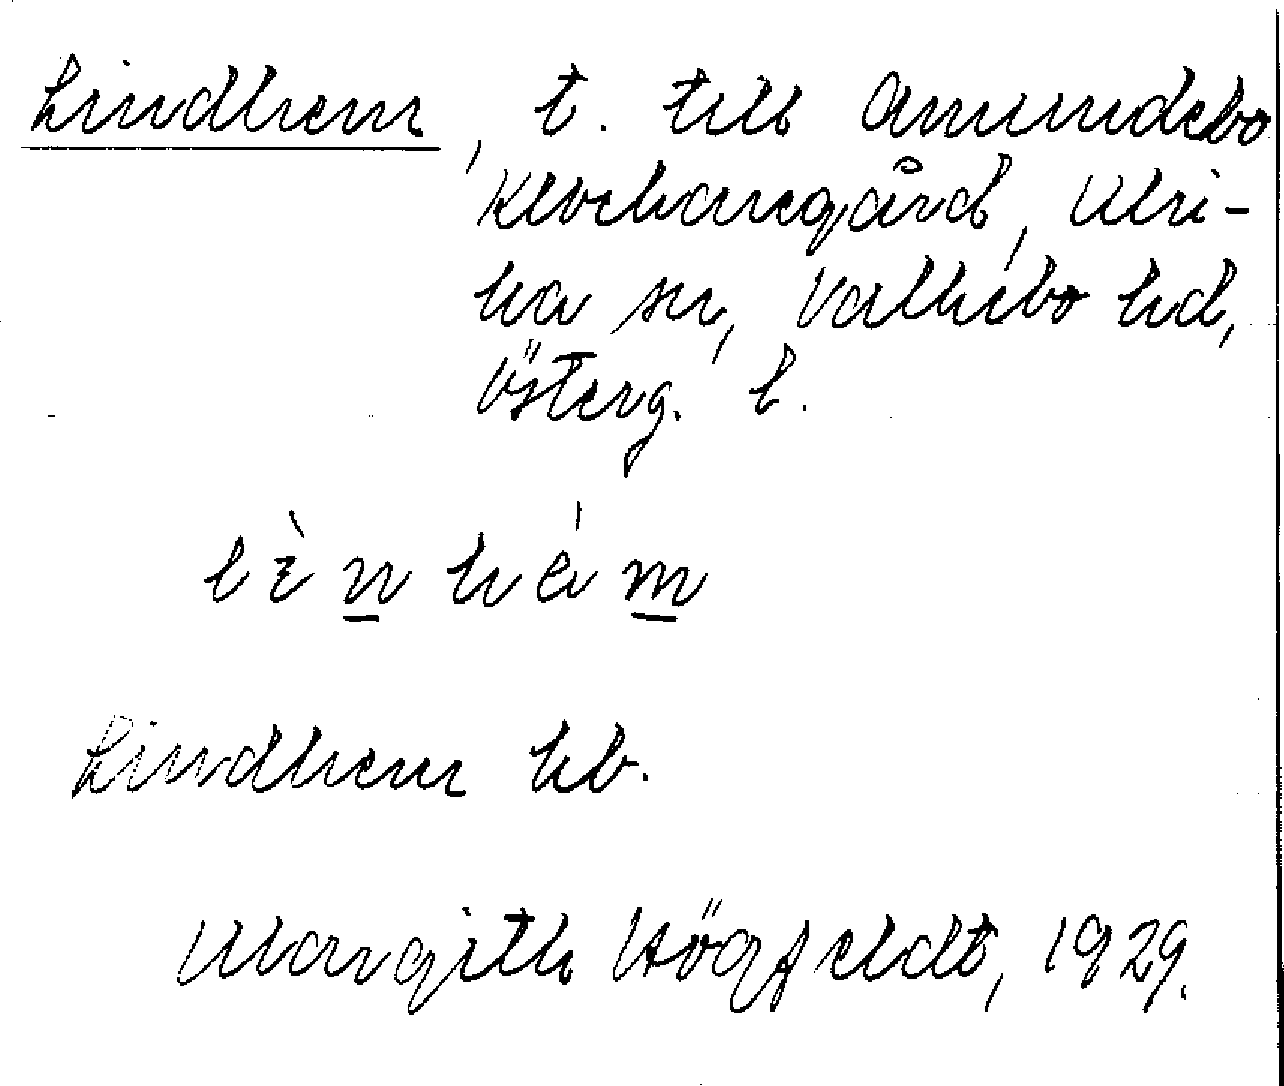 Lindhem, t. till Amundebo
Klockaregård, Ulri-
ka sn, Valkebo hd,
Österg. l.
lìnhém
Lindhem kb.
Margith Högfeldt, 1929.